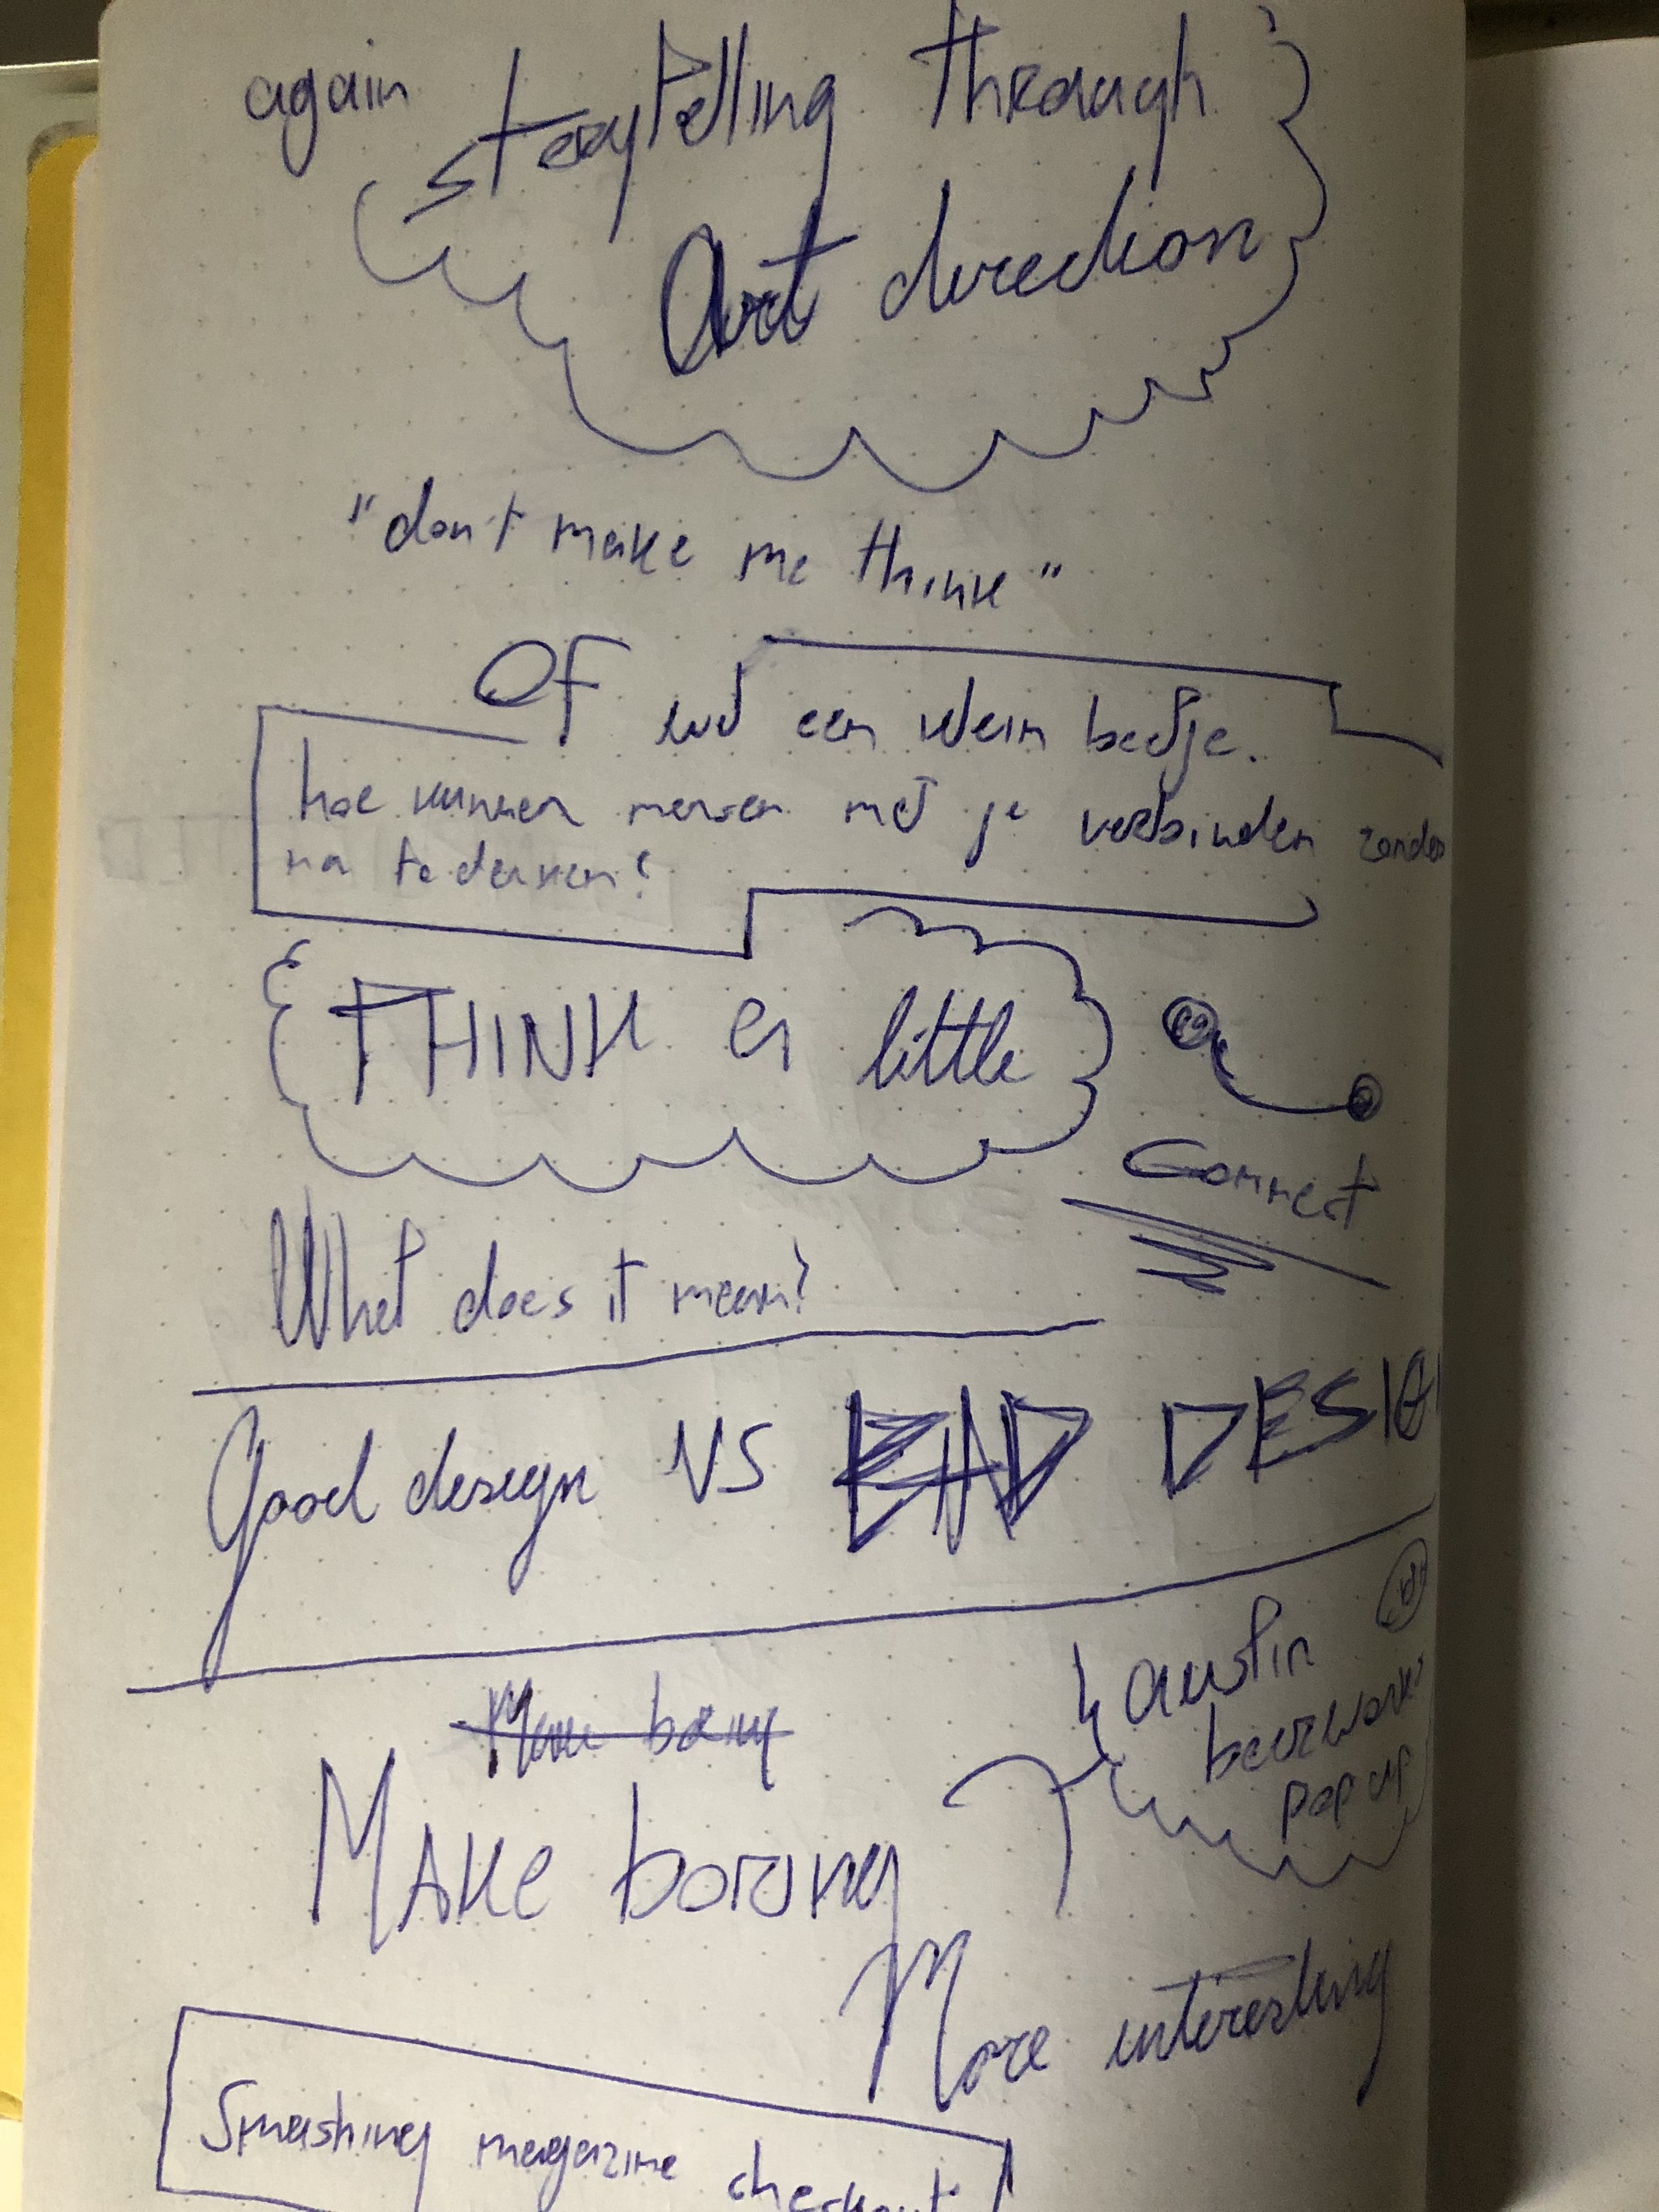 again storytelling through
Art direction
"don't make me think"
Of wel een klein beetje.
hoe kunnen mensen met je verbinden zonder
na te denken?
THINK a little
Connect
What does it mean?
Good design VS BAD DESIG
austin
beerworks
pop up
Make boring
More interesting
Smashing magazine checkout